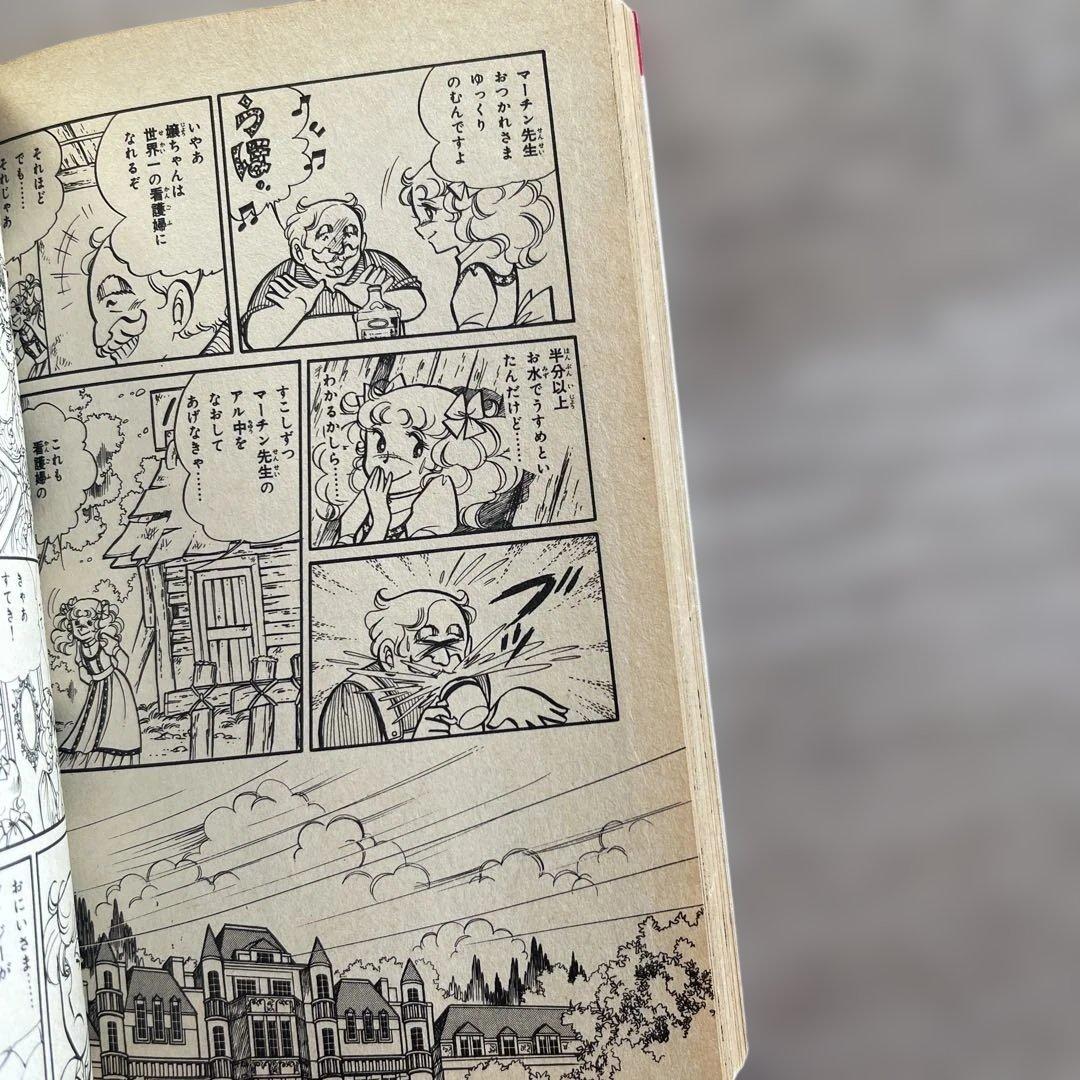 マーチン先生
おつかれさま
ゆっくり
のむんですよ
いやあ
嬢ちゃんは
世界一の看護婦に
なれるぞ
それほど
でも……
それじゃあ
半分以上
お水でうすめとい
たんだけど……
わかるかしら……
ブッ
すこしずつ
マーチン先生の
アル中を
なおして
あげなきゃ……
これも
看護婦の
きゃあ
すてき！
おにいさま……